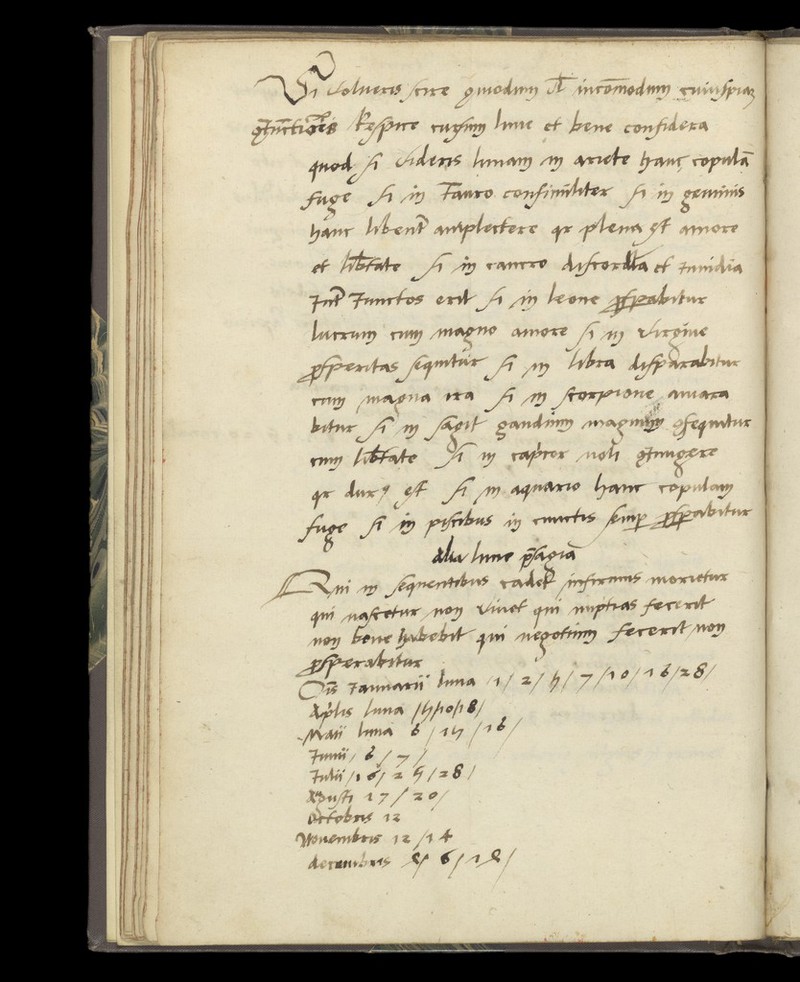 Si volueris scire quomodum vel incōmodum cuiuspiam
9Iūctiones Respice cursum lune et bene considera
quod si videris lunam in ariete hanc copulā
fuge si in Tauro consimiliter si in geminis
hanc libent̄ amplectere qr plena est amore
et lib̄tate si in cancro discordia et Inuidia
Int̄ Iunctos erit si in leone prosperabitur
lucrum cum magno amore si in virgine
prosperitas sequitur si in libra disparabitur
cum magna ira si in scorpione amara
bitur si in sagit gaudium magnum 9sequitur
cum lib̄tate Si in capcor noli 9Iungere
qr dur9 est Si in aquario hanc copulam
fuge si in piscibus in cunctis semp prosperabitur
Alia lune p̄sagia
Qui in sequentibus cadet infirmus morietur
qui nascetur non vivet qui nuptias fecerit
non bene habebit qui negotium fecerit non
prosperabitur
Ianuarii luna 1/ 2/ 4/ 7/ 10/ 16/ 28/
Aplis luna /4/10/18/
Maii luna 6 / 14 / 16/
Iunii / 6 / 7 /
Iulii /16/ 2 4 / 28/
Agusti 17 / 20/
Octobris 12
Novembris 12 /14
decembris 8/ 6/ 18/